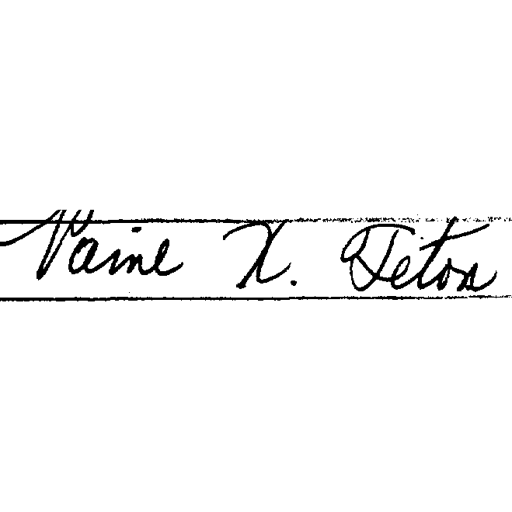 Vaine X. Teton